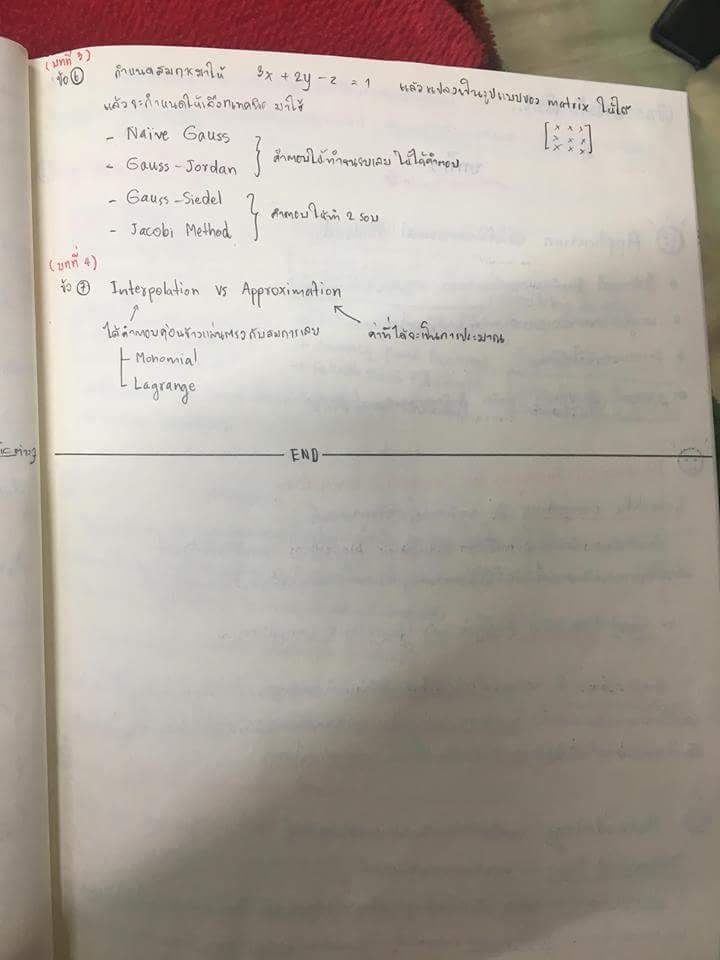 (บทที่ 3)
ข้อ ⑥ กำหนดสมการมาให้ 3x + 2y - z = 1 แล้วแปลงเป็นรูปแบบของ matrix ให้ได้
[x x x
x x x
x x x]
แล้วจะกำหนดให้เลือกเทคนิค มาใช้
- Naive Gauss
- Gauss-Jordan } คำตอบให้ทำจนจบเลย ให้ได้คำตอบ
- Gauss-Siedel
- Jacobi Method } คำตอบให้ทำ 2 รอบ
(บทที่ 4)
ข้อ ⑦ Interpolation vs Approximation
ได้คำตอบค่อนข้างแม่นตรงกับสมการเลย ค่าที่ได้จะเป็นการประมาณ
Monomial
Lagrange
END